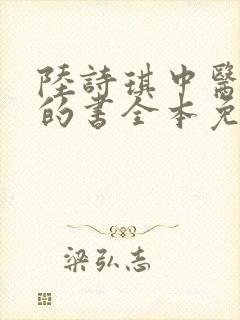 陸詩琪中醫
的書全本免
梁弘志